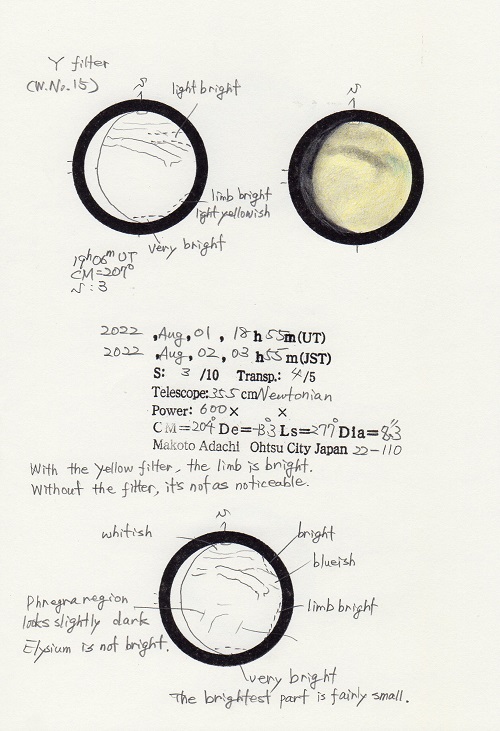 Y filter
(W.No.15)
S
light bright
S
limb bright
light yellowish
very bright
19h06mUT
CM=207°
S : 3
2022 ,Aug, 01 , 18 h 55m(UT)
2022 ,Aug, 02 , 03 h55m(JST)
S: 3 /10 Transp.: 4/5
Telescope:355cm Newtonian
Power: 600× ×
CM=204° De= Ls=277° Dia=8.3"
Makoto Adachi Ohtsu City Japan 22-110
With the yellow filter, the limb is bright.
Without the filter, it's not as noticeable.
S
whitish
bright
blueish
Phregra region
looks slightly dark
Elysium is not bright.
limb bright
very bright
The brightest part is fairly small.